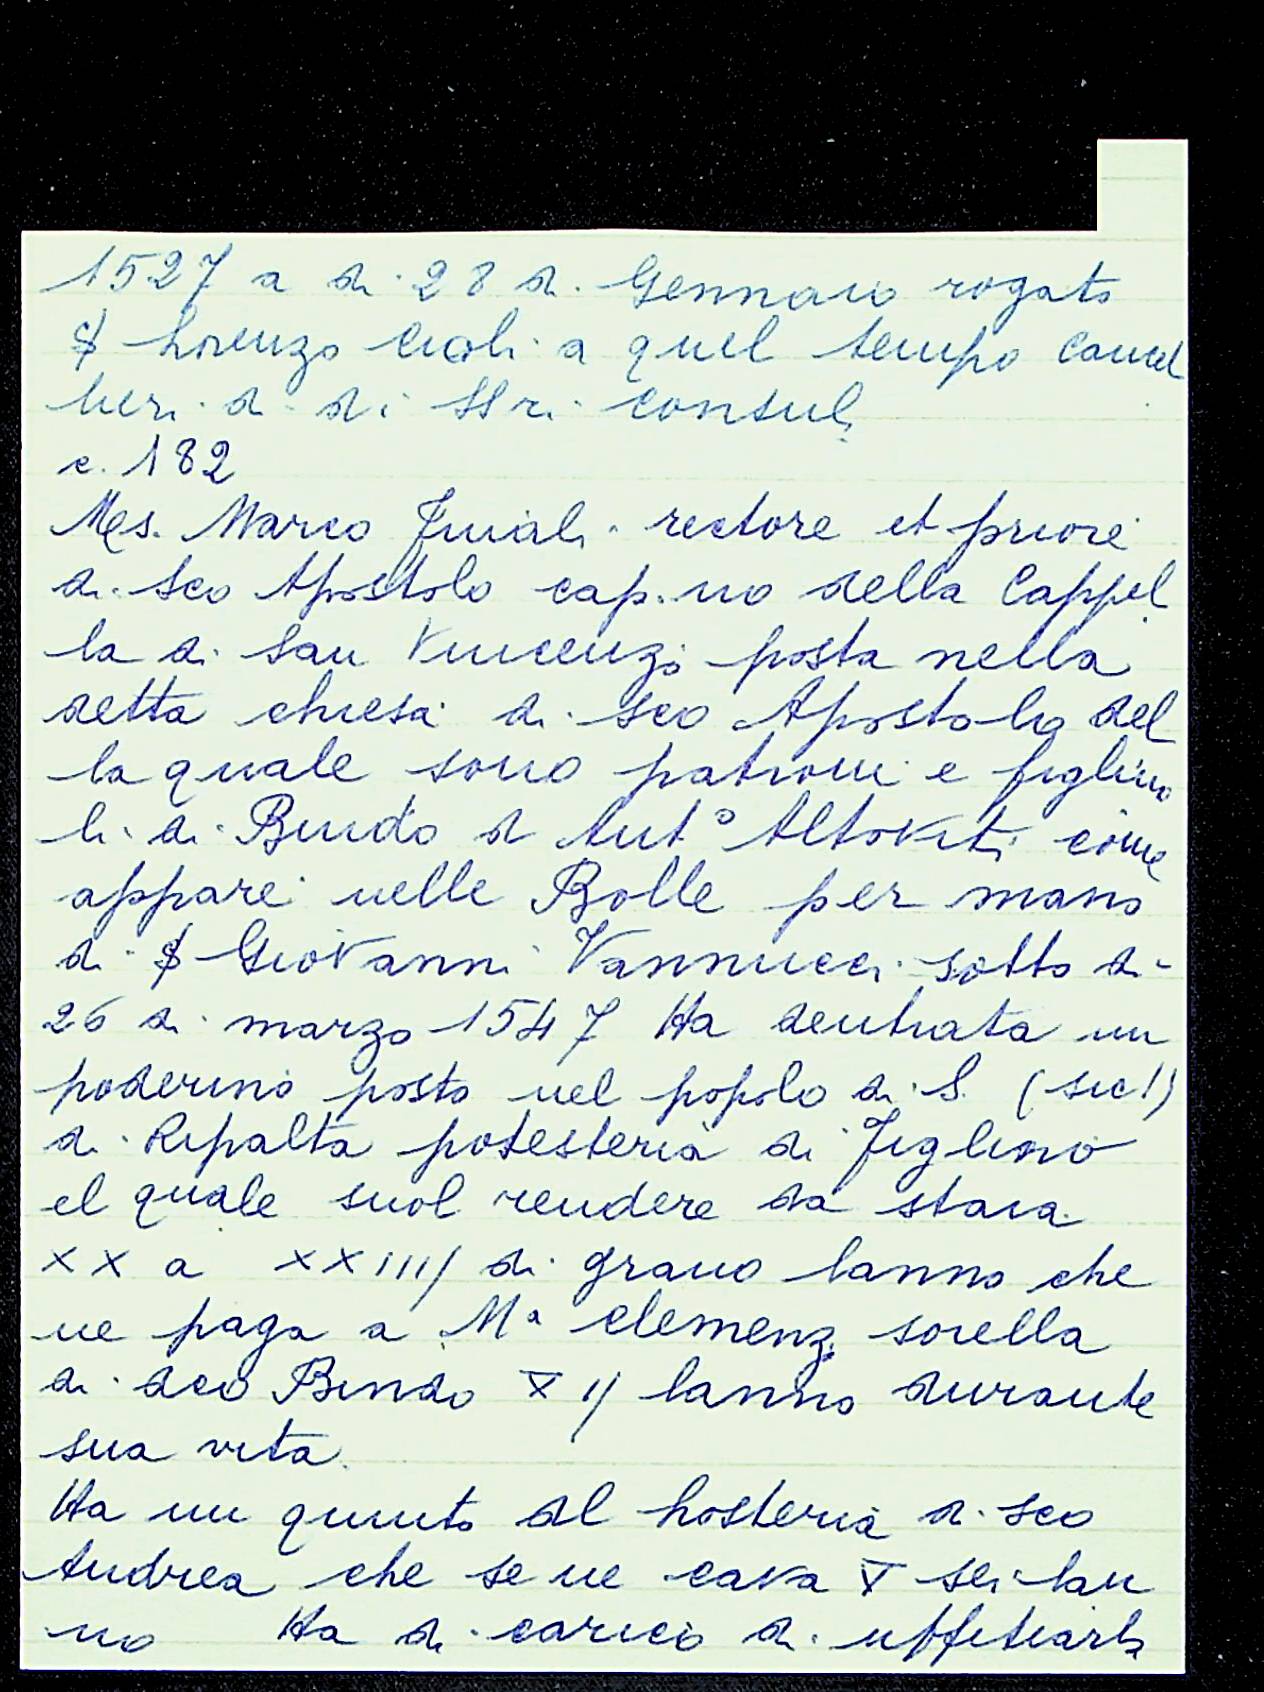 1527 a di 28 di Gennaio rogato
$ Lorenzo Cioli a quel tempo Cancel
lieri di di SSri consuli
c. 182
Mes. Marco Finiali rectore et priore
di Sco Apostolo cap.no della Cappel
la di San Vincenzi posta nella
detta chiesa di Sco Apostolo del
la quale sono patroni e figliuo
li di Bindo d Ant° Altoviti come
appare nelle Bolle per mano
di $ Giovanni Vannucci sotto di
26 di marzo 1547 Ha dentrata un
poderino posto nel popolo di S. (sic!)
di Ripalta potesteria di Figlino
el quale suol rendere da staia
XX a XXIIII di grano lanno che
ne paga a Mª Clemenz. sorella
di dco Bindo ∇ ij lanno durante
sua vita.
Ha un quinto al hosteria di Sco
Andrea che se ne cava ∇ sei lan
no Ha di carico di uffitiarla